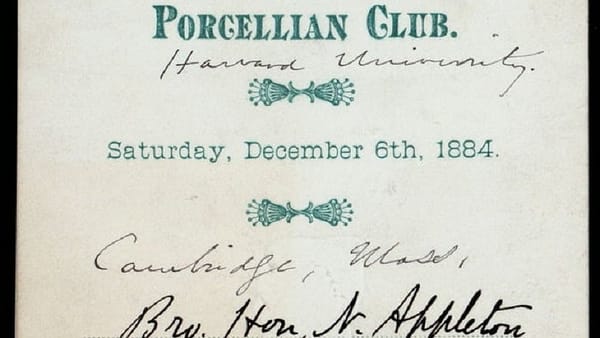 PORCELLIAN CLUB.
Harvard University.
Saturday, December 6th, 1884.
Cambridge, Mass.
Bro. Hon. N. Appleton